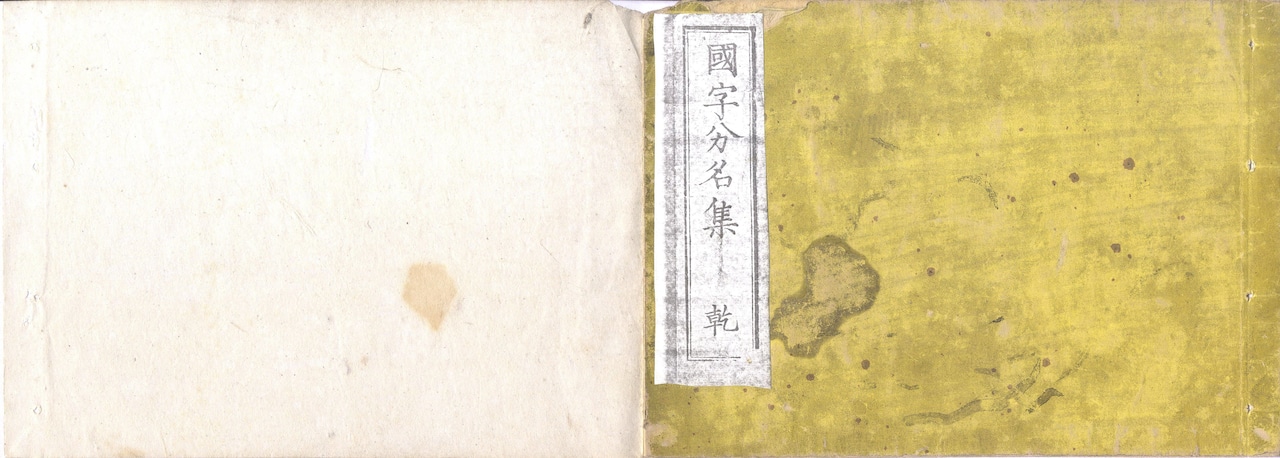 國字分名集 乾